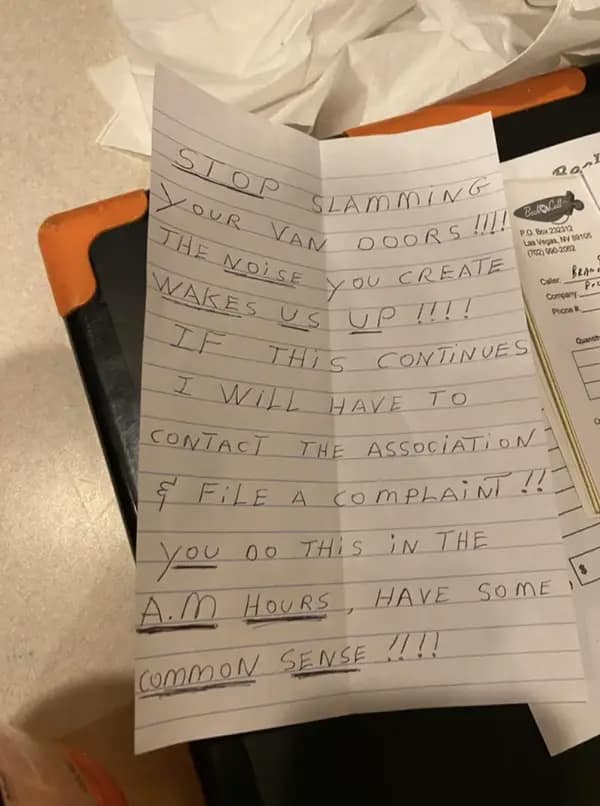 STOP SLAMMiNG
YOUR VAN DOORS !!!!
THE NOiSE YOU CREATE
WAKES US UP !!!!
IF THiS CONTiNUES
I WiLL HAVE TO
CONTACT THE ASSOCiATiON
& FiLE A COMPLAiNT !!
YOU DO THiS iN THE
A.M HOURS, HAVE SOME
COMMON SENSE !!!!
P.O. Box 232312
Las Vegas, NV 89105
Caller:
Company
Phone #
$